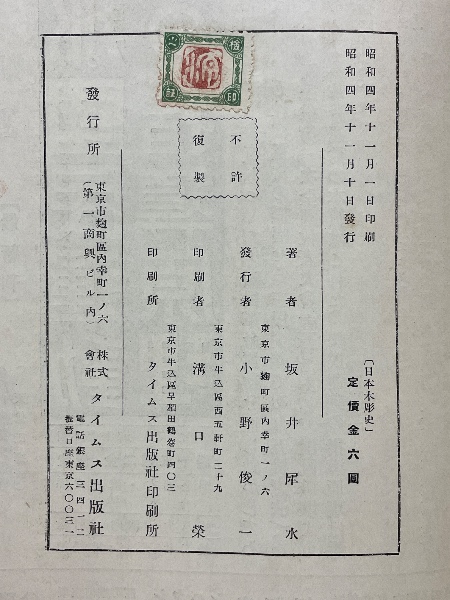 昭和四年十一月一日印刷
昭和四年十一月十日發行
〔日本木彫史〕
定價金六圓
不許
復製
著者 坂井犀水
東京市麹町區內幸町一ノ六
發行者 小野俊一
東京市牛込區西五軒町二十九
印刷者 溝口榮
東京市牛込區早稻田鶴巻町四〇三
印刷所 タイムス出版社印刷所
發行所
東京市麹町區內幸町一ノ六
(第一商興ビル內)
株式會社 タイムス出版社
電話銀座三四一二
振替口座東京六〇〇三一
檢印